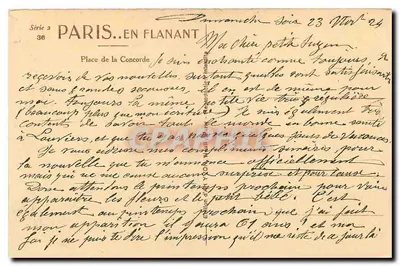 Série 2
36
PARIS..EN FLANANT
Place de la Concorde
Dimanche soir 23 Nov 24
Ma chère petite
Je suis enchantée comme toujours de
recevoir de vos nouvelles, surtout quand elles sont satisfaisantes
et sans grandes secousses, il en est de même pour
moi. toujours la même petite vie trop régulière
beaucoup plus que mon écriture. Je suis également très
contente de savoir tout le monde en bonne santé
à Louviers, et que tu as jours de vacances.
Je vous adresse mes compliments sincères pour
la nouvelle que tu m'annonce officiellement
mais qui ne me cause aucune surprise et pour cause.
Donc attendons le printemps prochain pour voir
apparaître les fleurs et le petit bébé. C'est
également au printemps prochain que j'ai fait
mon apparition il y aura 61 ans! et ma
foi je ne puis te dire l'impression qu'il me reste de ce jour là